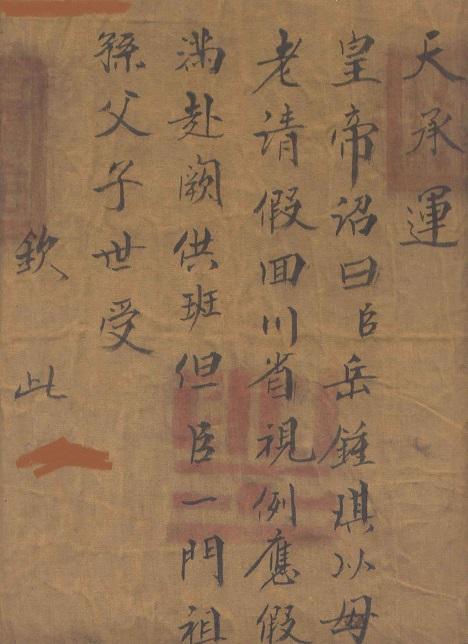 天承運
皇帝詔曰臣岳鍾琪以毋
老請假回川省視例應假
滿赴闕供班但臣一門祖
孫父子世受
欽
此